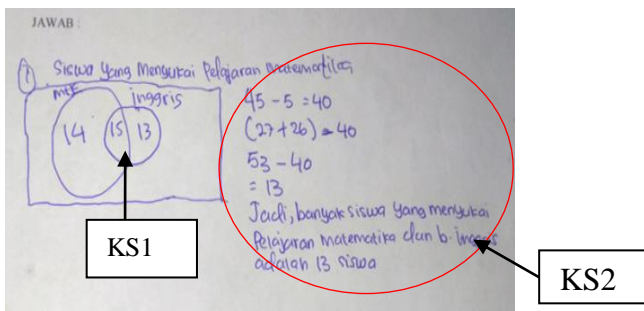 JAWAB :
① Siswa yang Mengukai Pelajaran matematika
mtk
inggris
14
15
13
45 - 5 = 40
(27 + 26) - 40
53 - 40
= 13
Jadi, banyak siswa yang mengukai
Pelajaran Matematika dan b. inggris
adalah 13 siswa
KS1
KS2